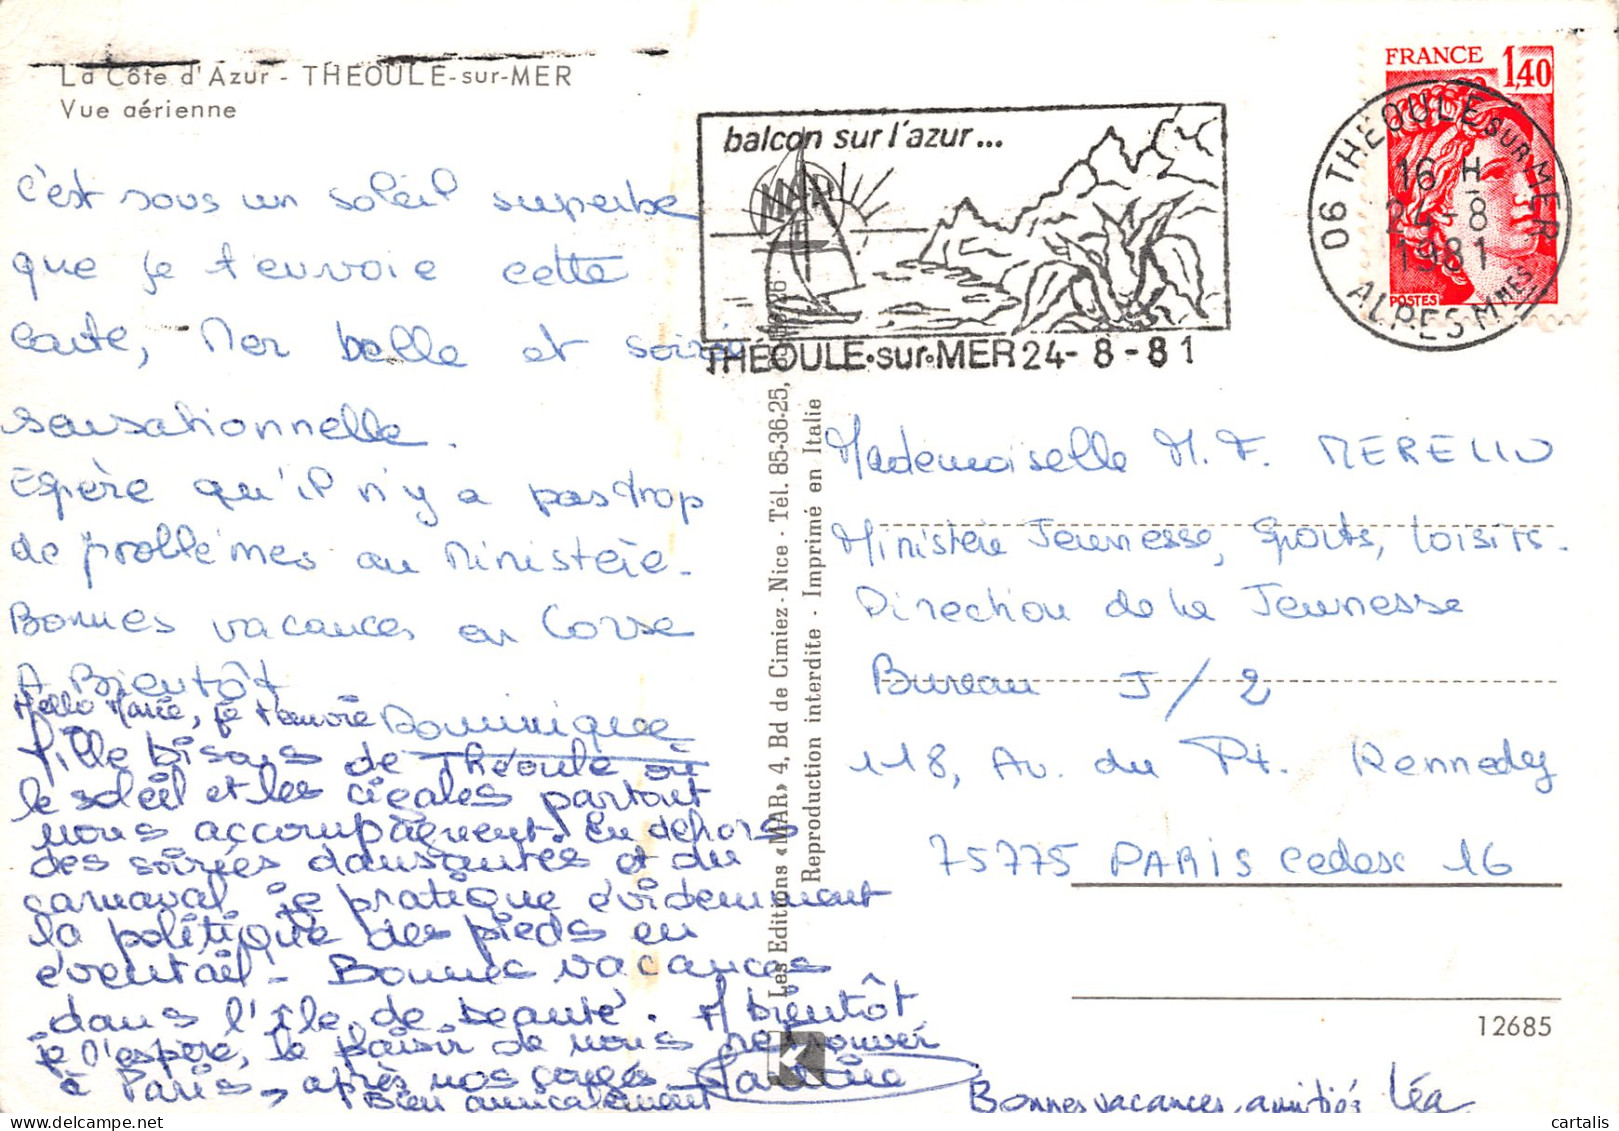 La Côte d'Azur - THEOULE-sur-MER
Vue aérienne
c'est sous un soleil superbe
que je t'envoie cette
carte, Mer belle et soirée
sensationnelle.
Espère qu'il n'y a pas trop
de problèmes au Ministère.
Bonnes vacances en Corse
A Bientôt
Dominique
Hello Marie, je t'envoie
mille bisous de Théoule où
le soleil et les cigales partout
nous accompagnent. En dehors
des soirées dansantes et du
carnaval je pratique évidemment
la politique des pieds en
éventail - Bonnes vacances
dans l'île de beauté. A bientôt
je l'espère, le plaisir de nous retrouver
à Paris, après nos congés Martine
Bien amicalement
Bonnes vacances, amitiés Léa
balcon sur l'azur...
MAR
THÉOULE·sur·MER 24-8-81
FRANCE 1,40
POSTES
06 THEOULE SUR MER
16 H
24-8
1981
ALPES MMES
Les Editions «MAR» 4, Bd de Cimiez - Nice - Tél. 85-36-25,
Reproduction interdite - Imprimé en Italie
Mademoiselle M. F. MERELLO
Ministère Jeunesse, Sports, Loisirs.
Direction de la Jeunesse
Bureau J/2
118, Av. du Pt. Kennedy
75775 PARIS Cedex 16
12685
K
© cartalis
www.delcampe.net